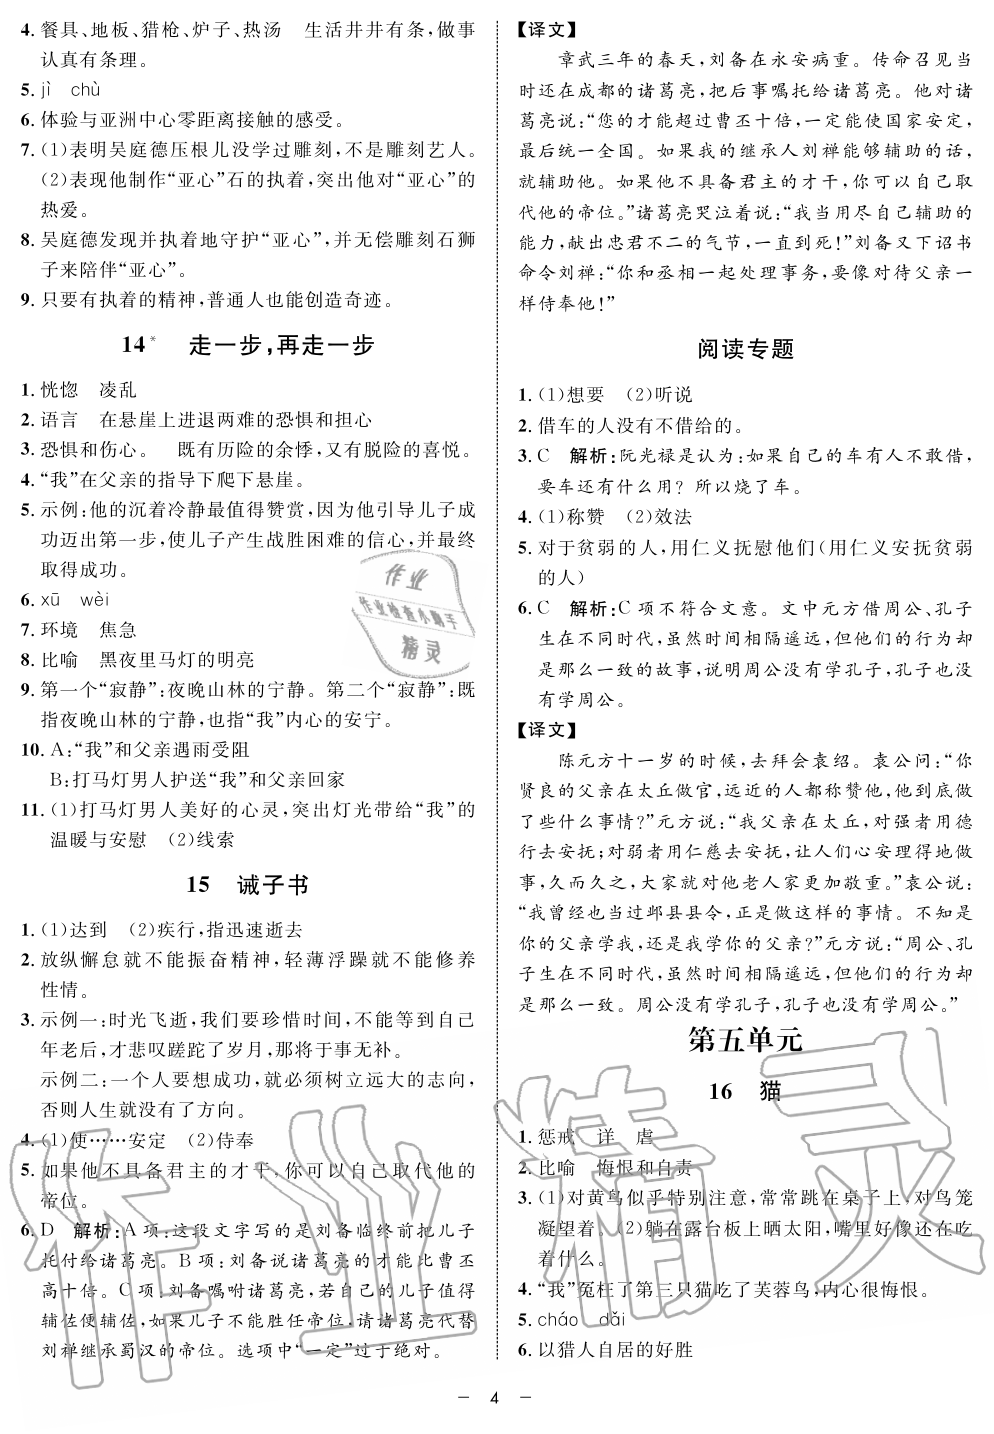 4. 餐具、地板、猎枪、炉子、热汤　生活井井有条,做事
认真有条理。
5. jì　chù
6. 体验与亚洲中心零距离接触的感受。
7. (1)表明吴庭德压根儿没学过雕刻,不是雕刻艺人。
(2)表现他制作“亚心”石的执着,突出他对“亚心”的
热爱。
8. 吴庭德发现并执着地守护“亚心”,并无偿雕刻石狮
子来陪伴“亚心”。
9. 只要有执着的精神,普通人也能创造奇迹。
14*　走一步,再走一步
1. 恍惚　凌乱
2. 语言　在悬崖上进退两难的恐惧和担心
3. 恐惧和伤心。　既有历险的余悸,又有脱险的喜悦。
4. “我”在父亲的指导下爬下悬崖。
5. 示例:他的沉着冷静最值得赞赏,因为他引导儿子成
功迈出第一步,使儿子产生战胜困难的信心,并最终
取得成功。
6. xū　wèi
7. 环境　焦急
8. 比喻　黑夜里马灯的明亮
9. 第一个“寂静”:夜晚山林的宁静。第二个“寂静”:既
指夜晚山林的宁静,也指“我”内心的安宁。
10. A:“我”和父亲遇雨受阻
B:打马灯男人护送“我”和父亲回家
11. (1)打马灯男人美好的心灵,突出灯光带给“我”的
温暖与安慰　(2)线索
15　诫子书
1. (1)达到　(2)疾行,指迅速逝去
2. 放纵懈怠就不能振奋精神,轻薄浮躁就不能修养
性情。
3. 示例一:时光飞逝,我们要珍惜时间,不能等到自己
年老后,才悲叹蹉跎了岁月,那将于事无补。
示例二:一个人要想成功,就必须树立远大的志向,
否则人生就没有了方向。
4. (1)使……安定　(2)侍奉
5. 如果他不具备君主的才干,你可以自己取代他的
帝位。
6. D　解析:A项:这段文字写的是刘备临终前把儿子
托付给诸葛亮。B项:刘备说诸葛亮的才能比曹丕
高十倍。C项:刘备嘱咐诸葛亮,若自己的儿子值得
辅佐便辅佐,如果儿子不能胜任帝位,请诸葛亮代替
刘禅继承蜀汉的帝位。选项中“一定”过于绝对。
【译文】
章武三年的春天,刘备在永安病重。传命召见当
时还在成都的诸葛亮,把后事嘱托给诸葛亮。他对诸
葛亮说:“您的才能超过曹丕十倍,一定能使国家安定,
最后统一全国。如果我的继承人刘禅能够辅助的话,
就辅助他。如果他不具备君主的才干,你可以自己取
代他的帝位。”诸葛亮哭泣着说:“我当用尽自己辅助的
能力,献出忠君不二的气节,一直到死!”刘备又下诏书
命令刘禅:“你和丞相一起处理事务,要像对待父亲一
样侍奉他!”
阅读专题
1. (1)想要　(2)听说
2. 借车的人没有不借给的。
3. C　解析:阮光禄是认为:如果自己的车有人不敢借,
要车还有什么用?所以烧了车。
4. (1)称赞　(2)效法
5. 对于贫弱的人,用仁义抚慰他们(用仁义安抚贫弱
的人)
6. C　解析:C项不符合文意。文中元方借周公、孔子
生在不同时代,虽然时间相隔遥远,但他们的行为却
是那么一致的故事,说明周公没有学孔子,孔子也没
有学周公。
【译文】
陈元方十一岁的时候,去拜会袁绍。袁公问:“你
贤良的父亲在太丘做官,远近的人都称赞他,他到底做
了些什么事情?”元方说:“我父亲在太丘,对强者用德
行去安抚;对弱者用仁慈去安抚,让人们心安理得地做
事,久而久之,大家就对他老人家更加敬重。”袁公说:
“我曾经也当过邺县县令,正是做这样的事情。不知是
你的父亲学我,还是我学你的父亲?”元方说:“周公、孔
子生在不同时代,虽然时间相隔遥远,但他们的行为却
是那么一致。周公没有学孔子,孔子也没有学周公。”
第五单元
16　猫
1. 惩戒　详　虐
2. 比喻　悔恨和自责
3. (1)对黄鸟似乎特别注意,常常跳在桌子上,对鸟笼
凝望着。(2)躺在露台板上晒太阳,嘴里好像还在吃
着什么。
4. “我”冤枉了第三只猫吃了芙蓉鸟,内心很悔恨。
5. cháo　dǎi
6. 以猎人自居的好胜
作业
作业检查小助手
精灵
作业精灵
— 4 —